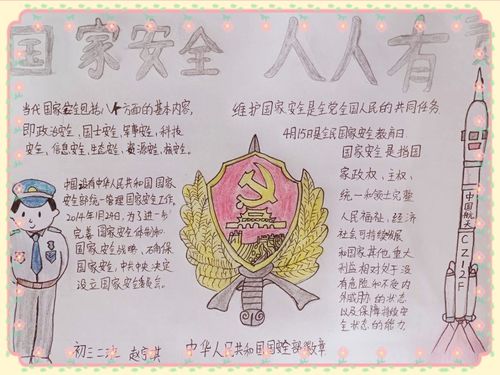 国家安全 人人有
当代国家安全包括八个方面的基本内容,
即政治安全、国土安全、军事安全、科技
安全、信息安全、生态安全、资源安全、核安全。
中国设有中华人民共和国国家
安全部统一管理国家安全工作。
2014年1月24日,为了进一步
完善国家安全体制和
国家安全战略,
国家安全,中共中央决定
设立国家安全委员会。
维护国家安全是全党全国人民的共同任务
4月15日是全民国家安全教育日
国家安全是指国
家政权、主权、
统一和领土完整
人民福祉、经济
社会可持续发展
和国家其他重大
利益相对处于没
有危险和不受内
外威胁的状态
以及保障持续安
全状态的能力
中国航天
CZ-12F
初三二班 赵宁淇
中华人民共和国国安部徽章